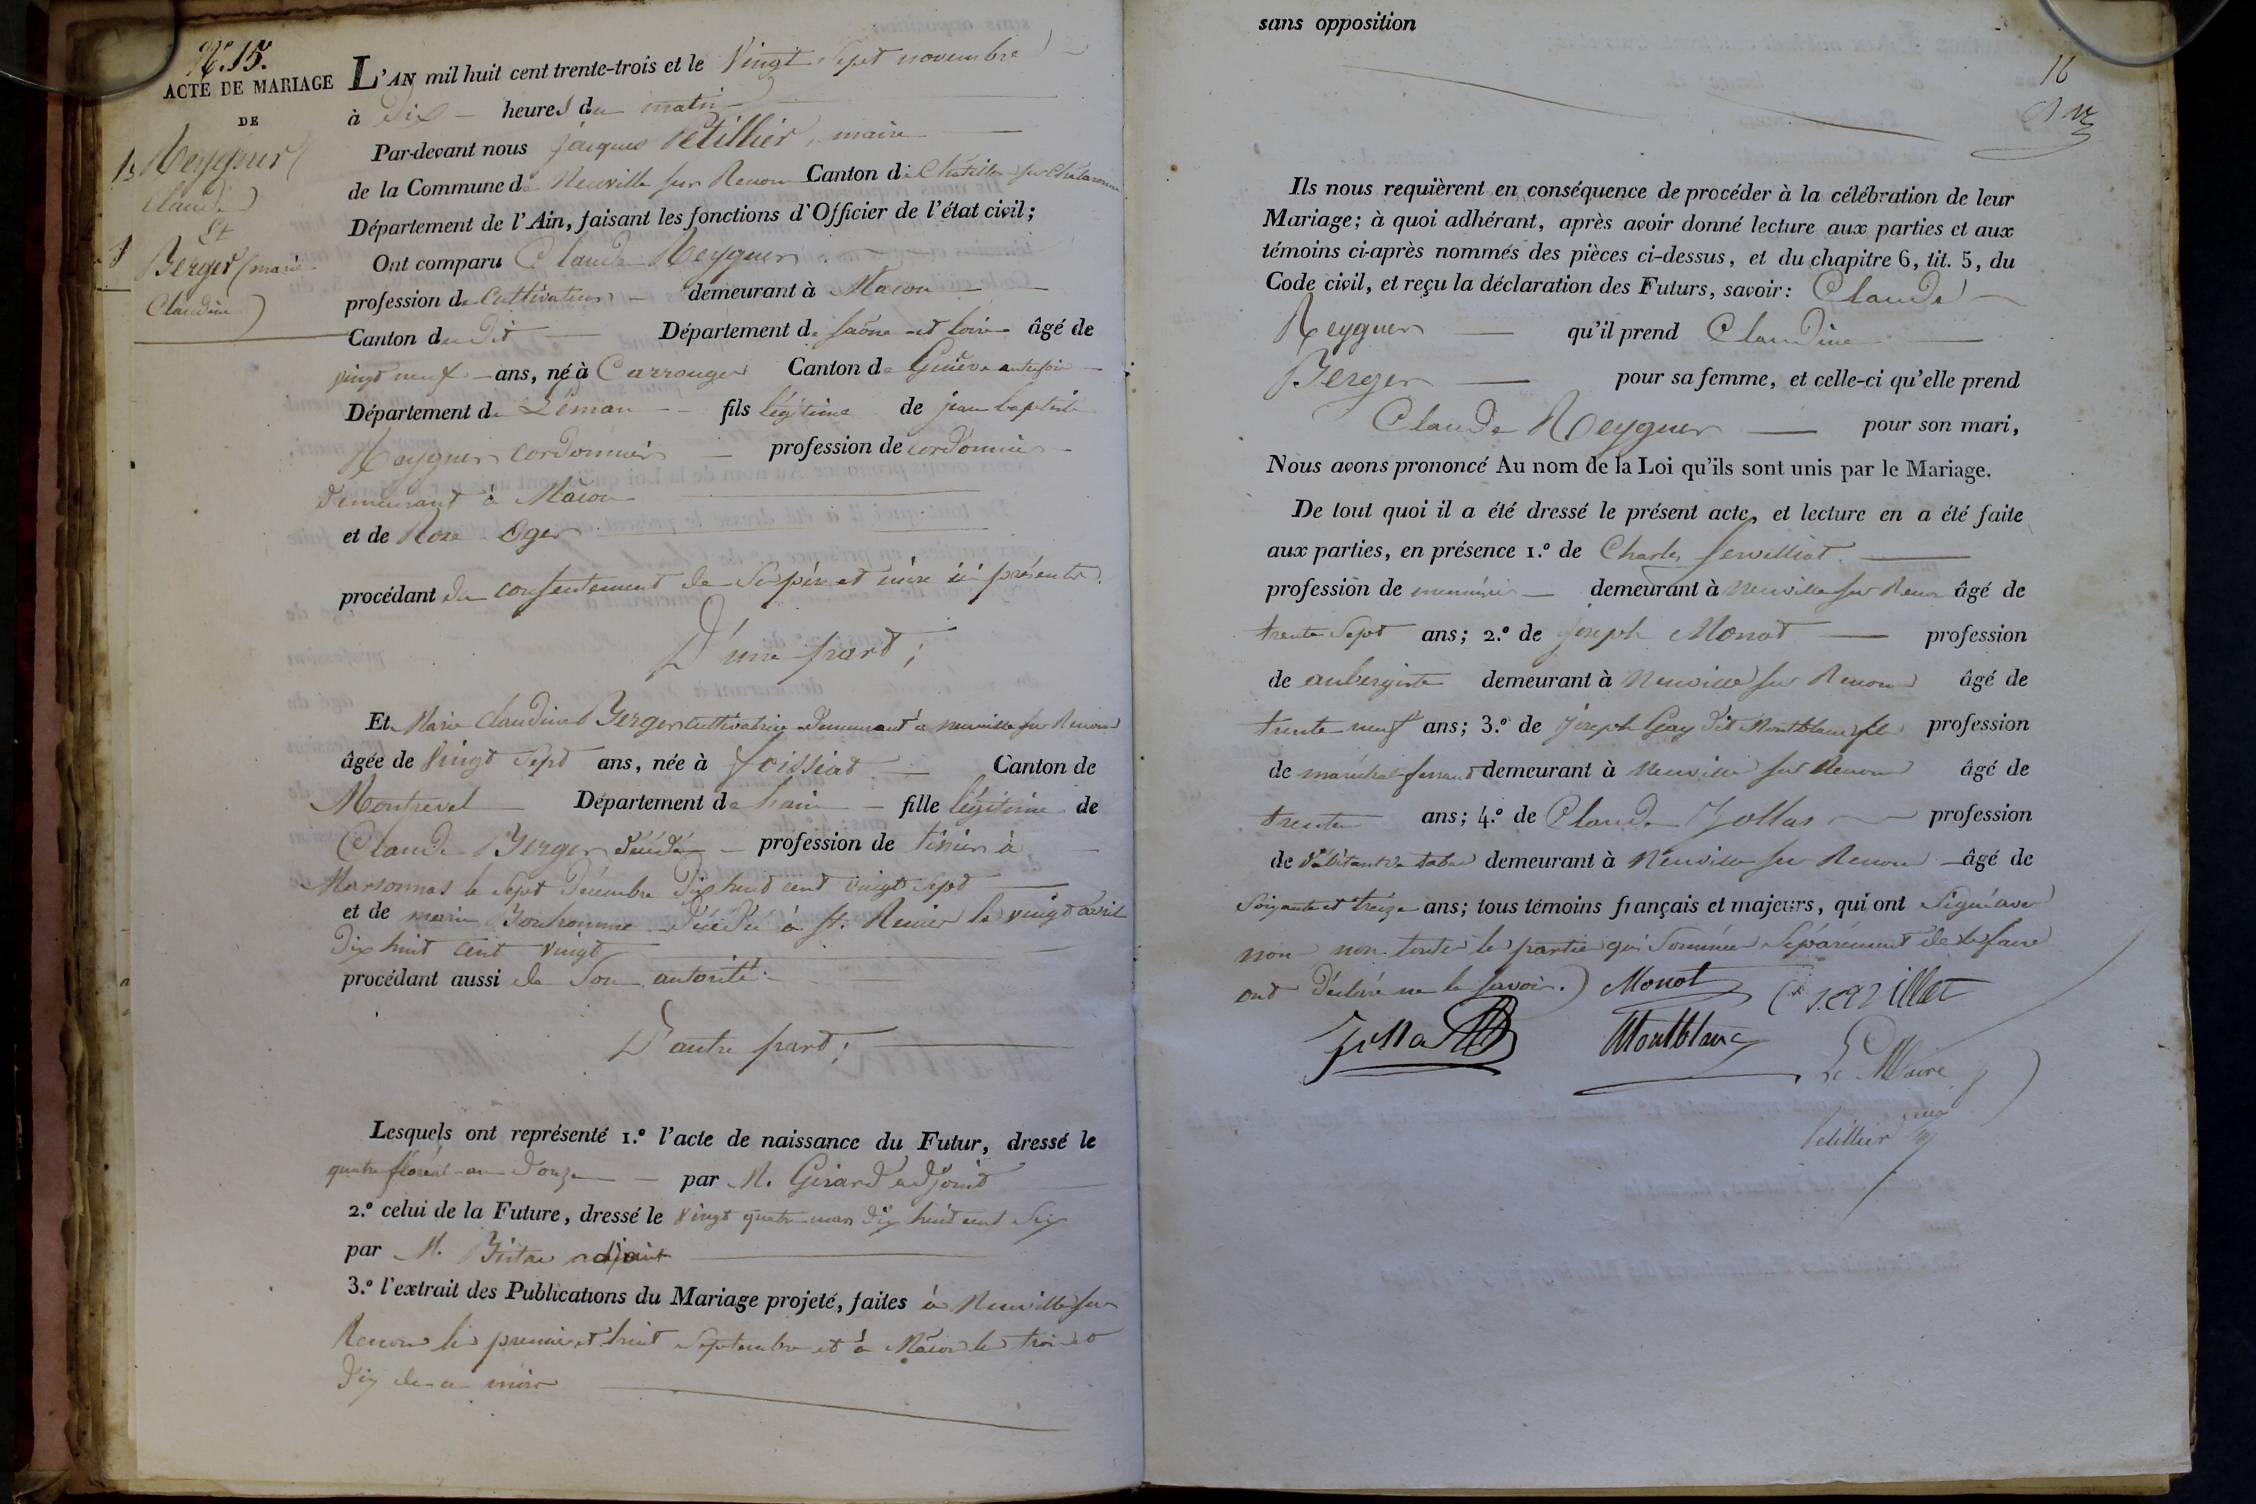 N.º 15.
ACTE DE MARIAGE
DE
Reyguer (
Claude)
Et
Berger (marie
Claudine)
L'AN mil huit cent trente-trois et le Vingt Sept novembre
à Dix heures du matin
Par-devant nous jacques Petillier, maire
de la Commune de Neuville sur Renon Canton de Châtillon sur Chalaronne
Département de l'Ain, faisant les fonctions d'Officier de l'état civil;
Ont comparu Claude Reyguer
profession de Cultivateur demeurant à Macon
Canton du Dit Département de Saône et Loire âgé de
vingt neuf ans, né à Carrouge Canton de Genève autrefois
Département du Léman fils légitime de jean baptiste
Reyguer cordonnier profession de cordonnier
demeurant à Mâcon
et de Rose Oger
procédant du consentement de Ses père et mère ici présents.
D'une part;
Et Marie Claudine Berger cultivatrice demeurant à neuville sur Renon
âgée de Vingt Sept ans, née à foissiat Canton de
Montrevel Département de lain fille légitime de
Claude Berger décédé profession de tisseur à
Marsonnas le Sept Décembre Dix huit cent vingt Sept
et de marie Bonhomme Décédée à St. Remier le vingt avril
Dix huit cent vingt
procédant aussi de Son autorité.
D'autre part;
Lesquels ont représenté 1.º l'acte de naissance du Futur, dressé le
quatre floréal an Douze par M. Girard adjoint
2.º celui de la Future, dressé le Vingt quatre mars Dix huit cent Six
par M. adjoint
3.º l'extrait des Publications du Mariage projeté, faites à Neuville sur
Renon les premier et huit Septembre et à Mâcon les trois et
Dix de ce mois
sans opposition
16
Ils nous requièrent en conséquence de procéder à la célébration de leur
Mariage; à quoi adhérant, après avoir donné lecture aux parties et aux
témoins ci-après nommés des pièces ci-dessus, et du chapitre 6, tit. 5, du
Code civil, et reçu la déclaration des Futurs, savoir: Claude
Reyguer qu'il prend Claudine
Berger pour sa femme, et celle-ci qu'elle prend
Claude Reyguer pour son mari,
Nous avons prononcé Au nom de la Loi qu'ils sont unis par le Mariage.
De tout quoi il a été dressé le présent acte, et lecture en a été faite
aux parties, en présence 1.º de Charles Servilliat
profession de menuisier demeurant à neuville sur Renon âgé de
trente Sept ans; 2.º de joseph Monot profession
de aubergiste demeurant à Neuville sur Renon âgé de
trente neuf ans; 3.º de joseph Gay dit Montblanc fils profession
de maréchal ferrant demeurant à neuville sur Renon âgé de
trente ans; 4.º de Claude Jollas profession
de débitant de tabac demeurant à Neuville sur Renon âgé de
Soixante et treize ans; tous témoins français et majeurs, qui ont Signé avec
nou non toutes les parties qui Sommées Séparément de le faire
ont Déclaré ne le Savoir.) Monot Servillat
Jolla Montblanc
Le Maire
Petillier